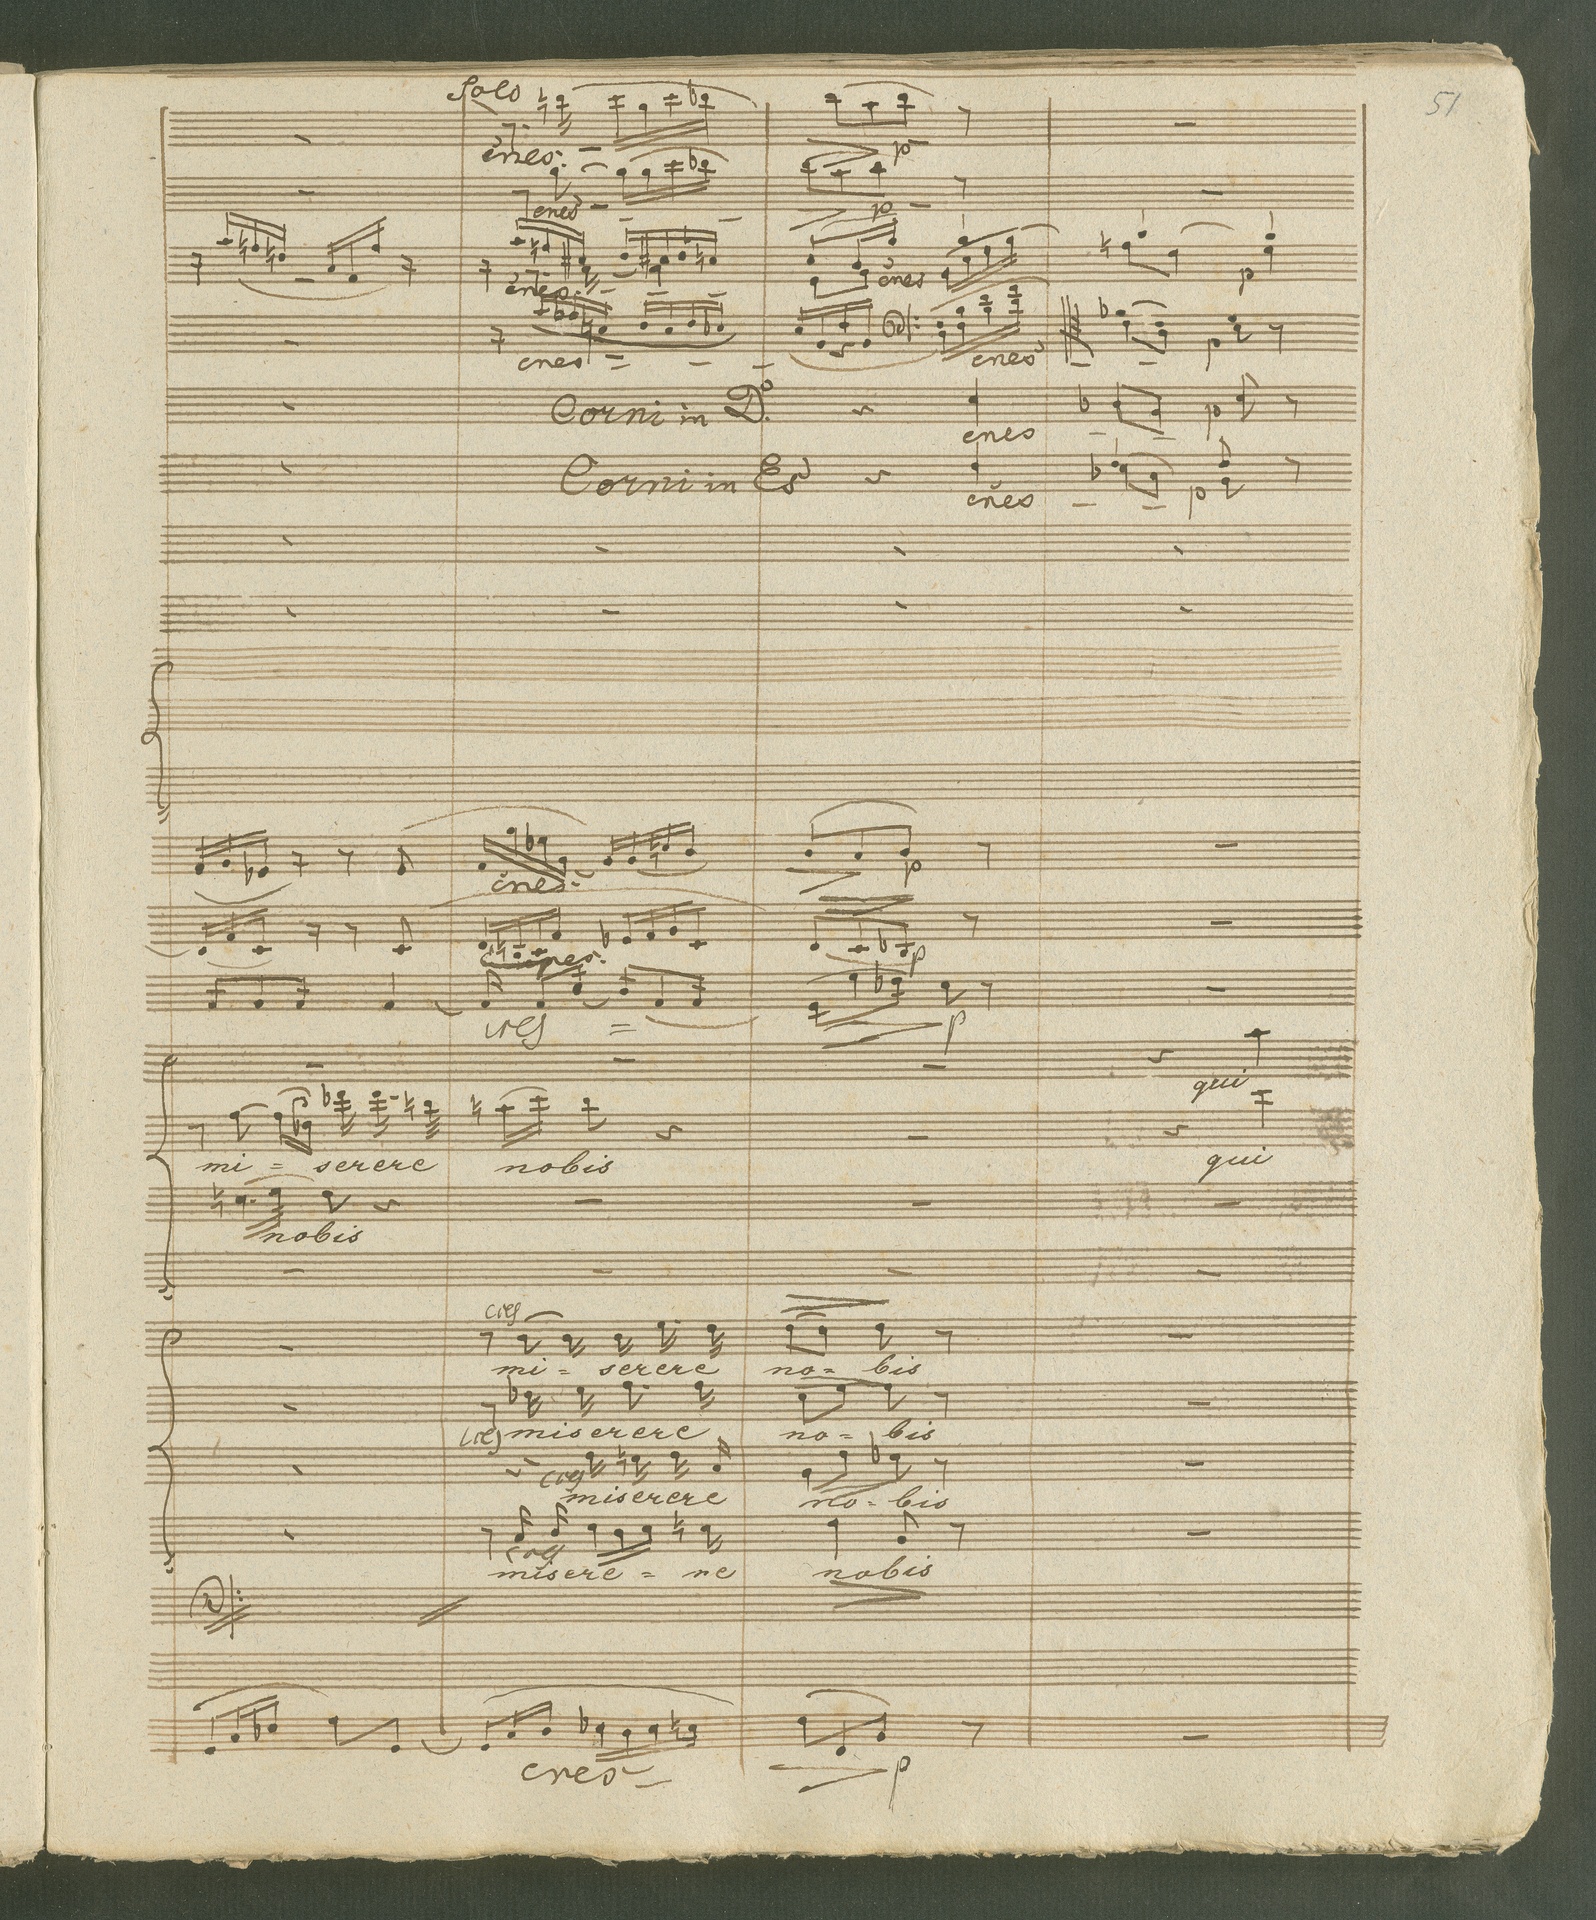 51
Solo
cres. p
cres p
cres. cres p
cres cres p
Corni in D. cres p
Corni in Es cres p
cres. p
cres. p
cres = p
qui
mi = serere nobis qui
nobis
cres
mi = serere no = bis
cres miserere no = bis
cres
miserere no = bis
cres
misere = re nobis
cres p